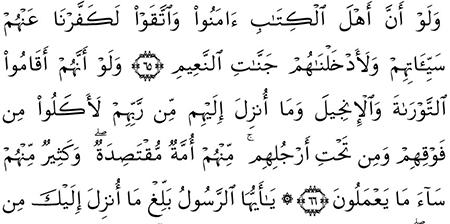 وَلَوْ أَنَّ أَهْلَ ٱلْكِتَٰبِ ءَامَنُوا۟ وَٱتَّقَوْا۟ لَكَفَّرْنَا عَنْهُمْ
سَيِّـَٔاتِهِمْ وَلَأَدْخَلْنَٰهُمْ جَنَّٰتِ ٱلنَّعِيمِ ﴿٦٥﴾ وَلَوْ أَنَّهُمْ أَقَامُوا۟
ٱلتَّوْرَىٰةَ وَٱلْإِنجِيلَ وَمَآ أُنزِلَ إِلَيْهِم مِّن رَّبِّهِمْ لَأَكَلُوا۟ مِن
فَوْقِهِمْ وَمِن تَحْتِ أَرْجُلِهِم ۚ مِّنْهُمْ أُمَّةٌ مُّقْتَصِدَةٌ ۖ وَكَثِيرٌ مِّنْهُمْ
سَآءَ مَا يَعْمَلُونَ ﴿٦٦﴾ ۞ يَٰٓأَيُّهَا ٱلرَّسُولُ بَلِّغْ مَآ أُنزِلَ إِلَيْكَ مِن